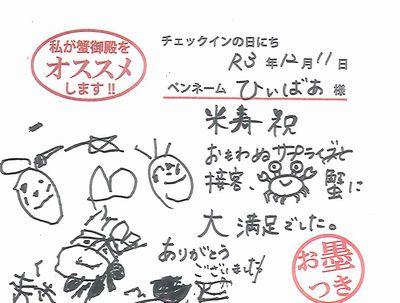 私が蟹御殿を
オススメ
します!!
チェックインの日にち
R3年12月11日
ペンネーム ひぃばあ 様
米寿祝
おもわぬサプライズと
接客、蟹に
大満足でした。
ありがとう
ございました!
お墨
つき